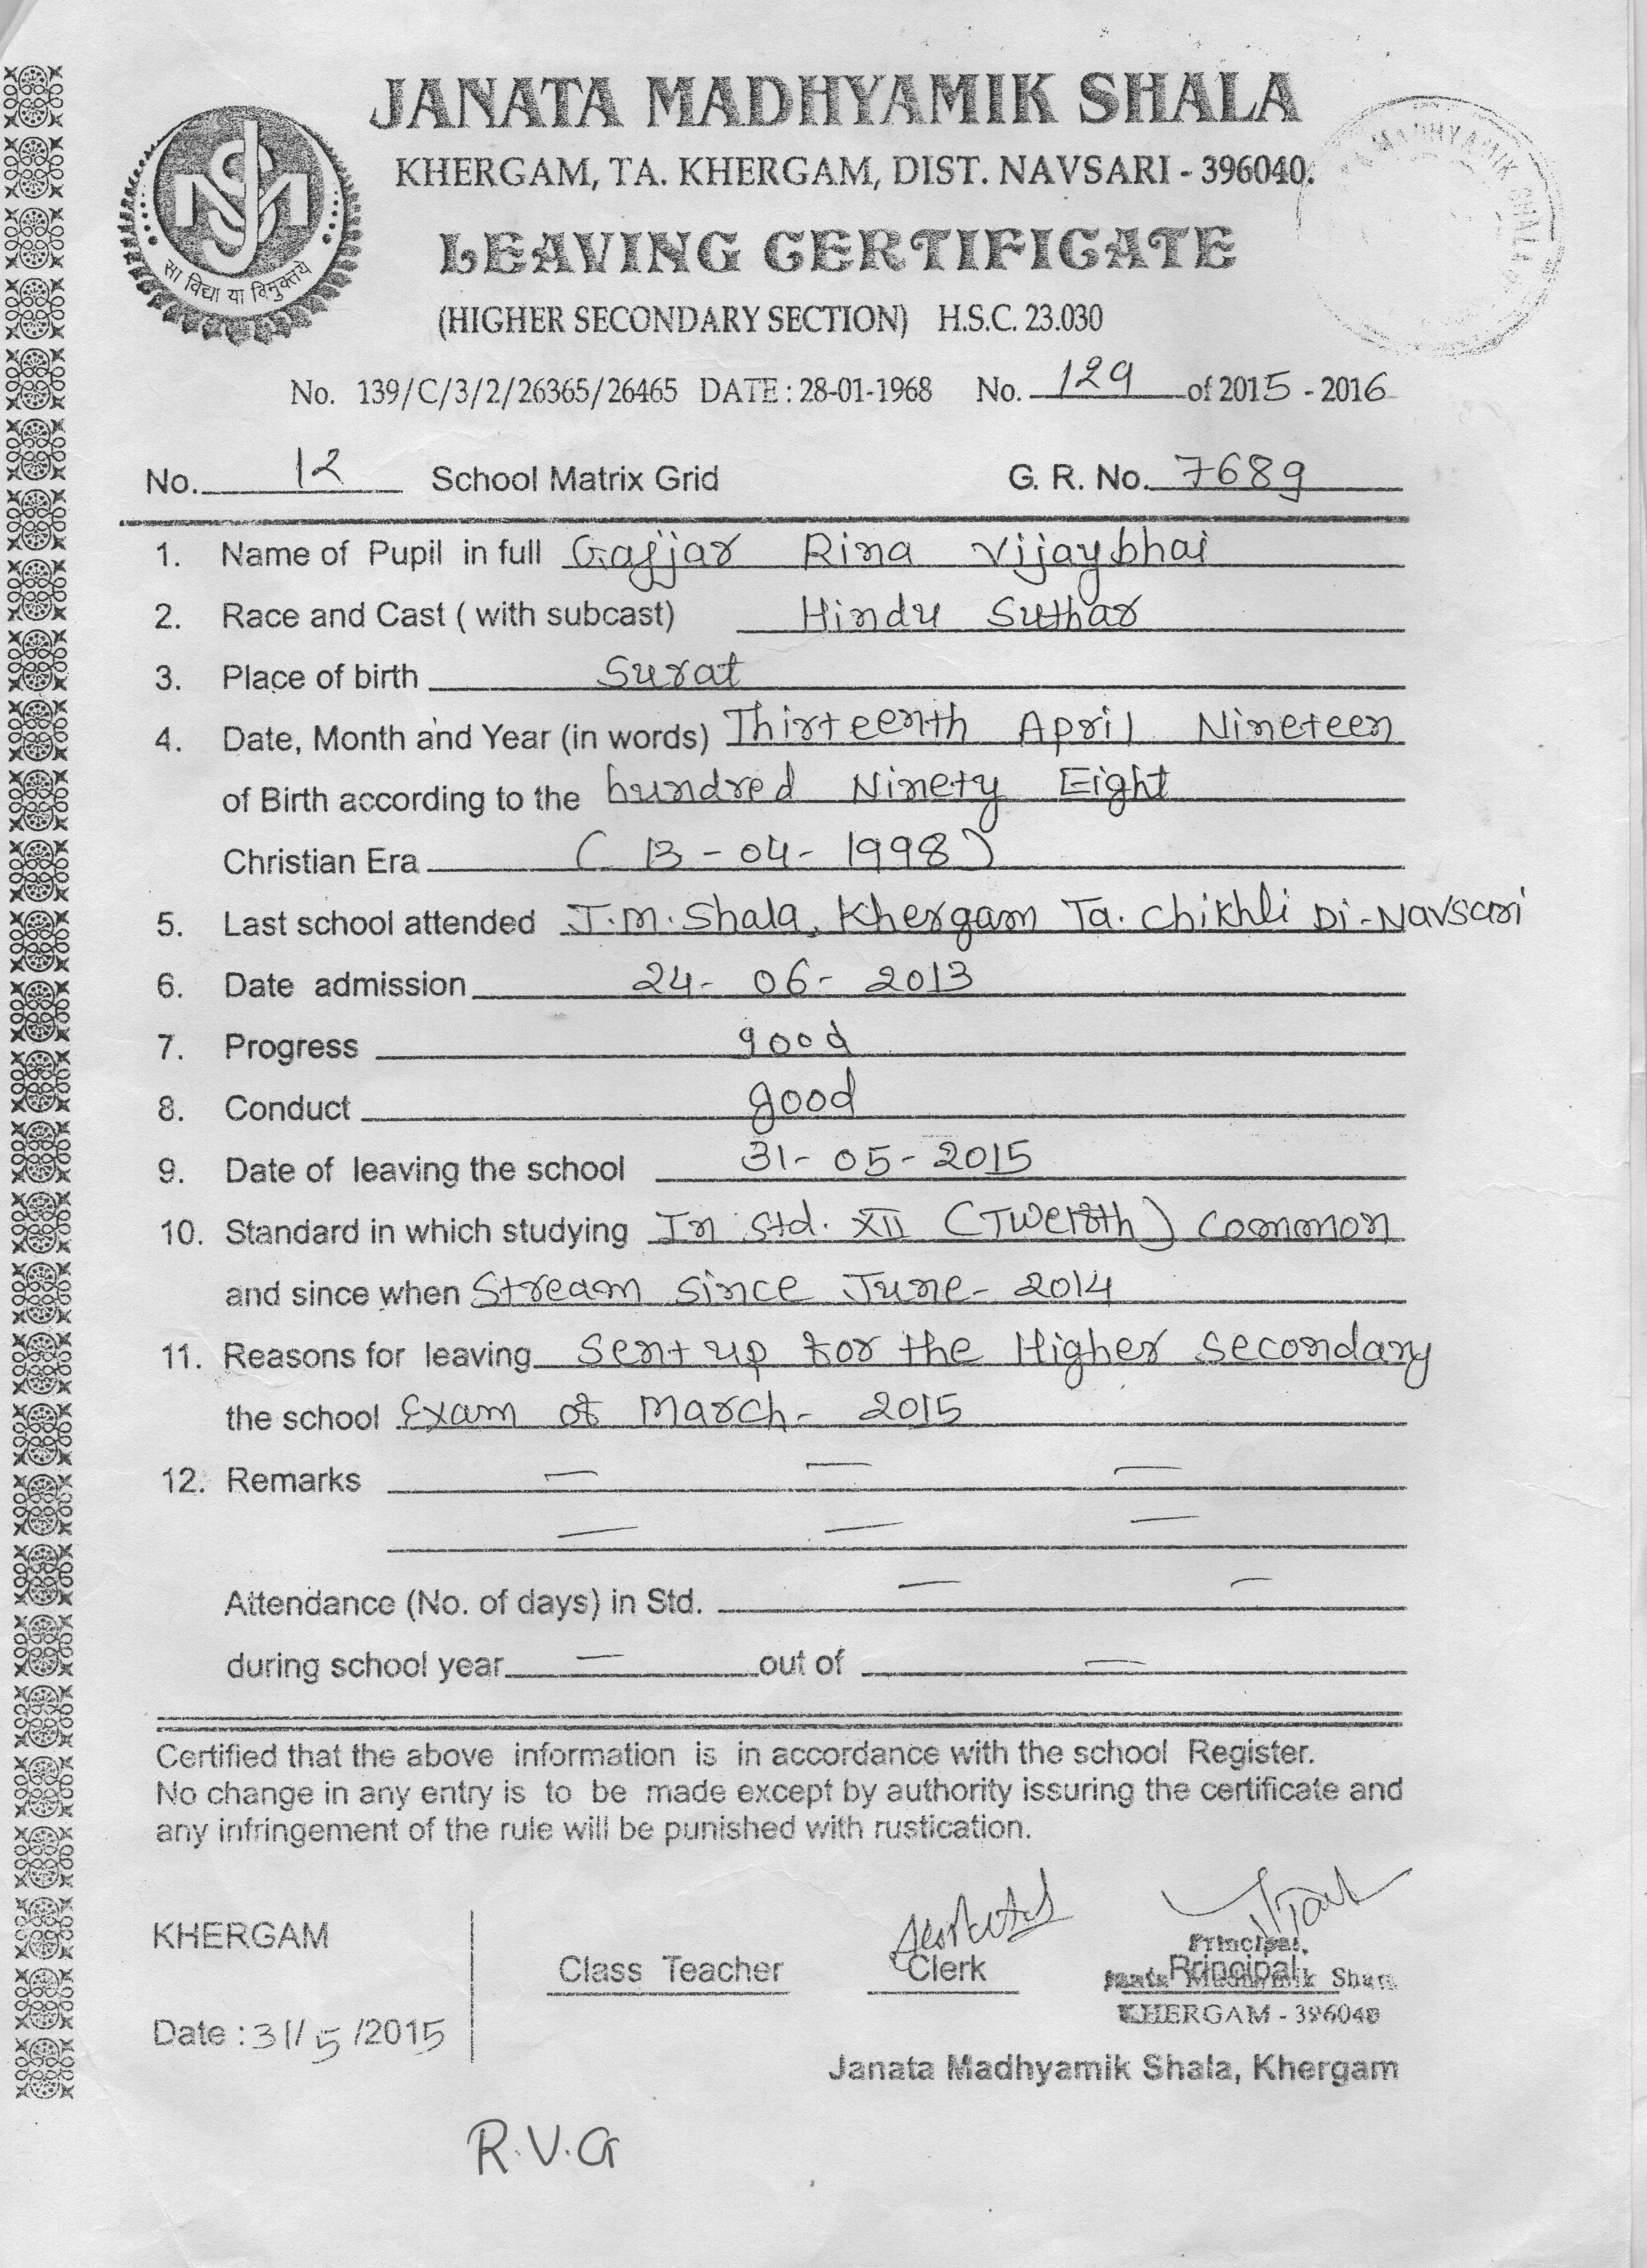 JANATA MADHYAMIK SHALA
KHERGAM, TA. KHERGAM, DIST. NAVSARI - 396040.
सा विद्या या विमुक्तये
MADHYAMIK SHALA
LEAVING CERTIFICATE
(HIGHER SECONDARY SECTION) H.S.C. 23.030
No. 139/C/3/2/26365/26465 DATE : 28-01-1968 No. 129 of 2015 - 2016
No. 12 School Matrix Grid G. R. No. 7689
1. Name of Pupil in full Gajjar Rina Vijaybhai
2. Race and Cast ( with subcast) Hindu Suthar
3. Place of birth Surat
4. Date, Month and Year (in words) Thirteenth April Nineteen
of Birth according to the hundred Ninety Eight
Christian Era ( 13 - 04 - 1998 )
5. Last school attended J.M. Shala, Khergam Ta. Chikhli Di - Navsari
6. Date admission 24 - 06 - 2013
7. Progress good
8. Conduct good
9. Date of leaving the school 31 - 05 - 2015
10. Standard in which studying In Std. XII (Twelfth) Common
and since when Stream since June - 2014
11. Reasons for leaving Sent up for the Higher Secondary
the school Exam of March - 2015
12. Remarks — — —
— — —
Attendance (No. of days) in Std. — —
during school year — out of —
Certified that the above information is in accordance with the school Register.
No change in any entry is to be made except by authority issuring the certificate and
any infringement of the rule will be punished with rustication.
KHERGAM
Class Teacher Clerk Principal
Principal,
Janata Madhyamik Shala
KHERGAM - 396040
Date : 31/5/2015
Janata Madhyamik Shala, Khergam
R.V.G